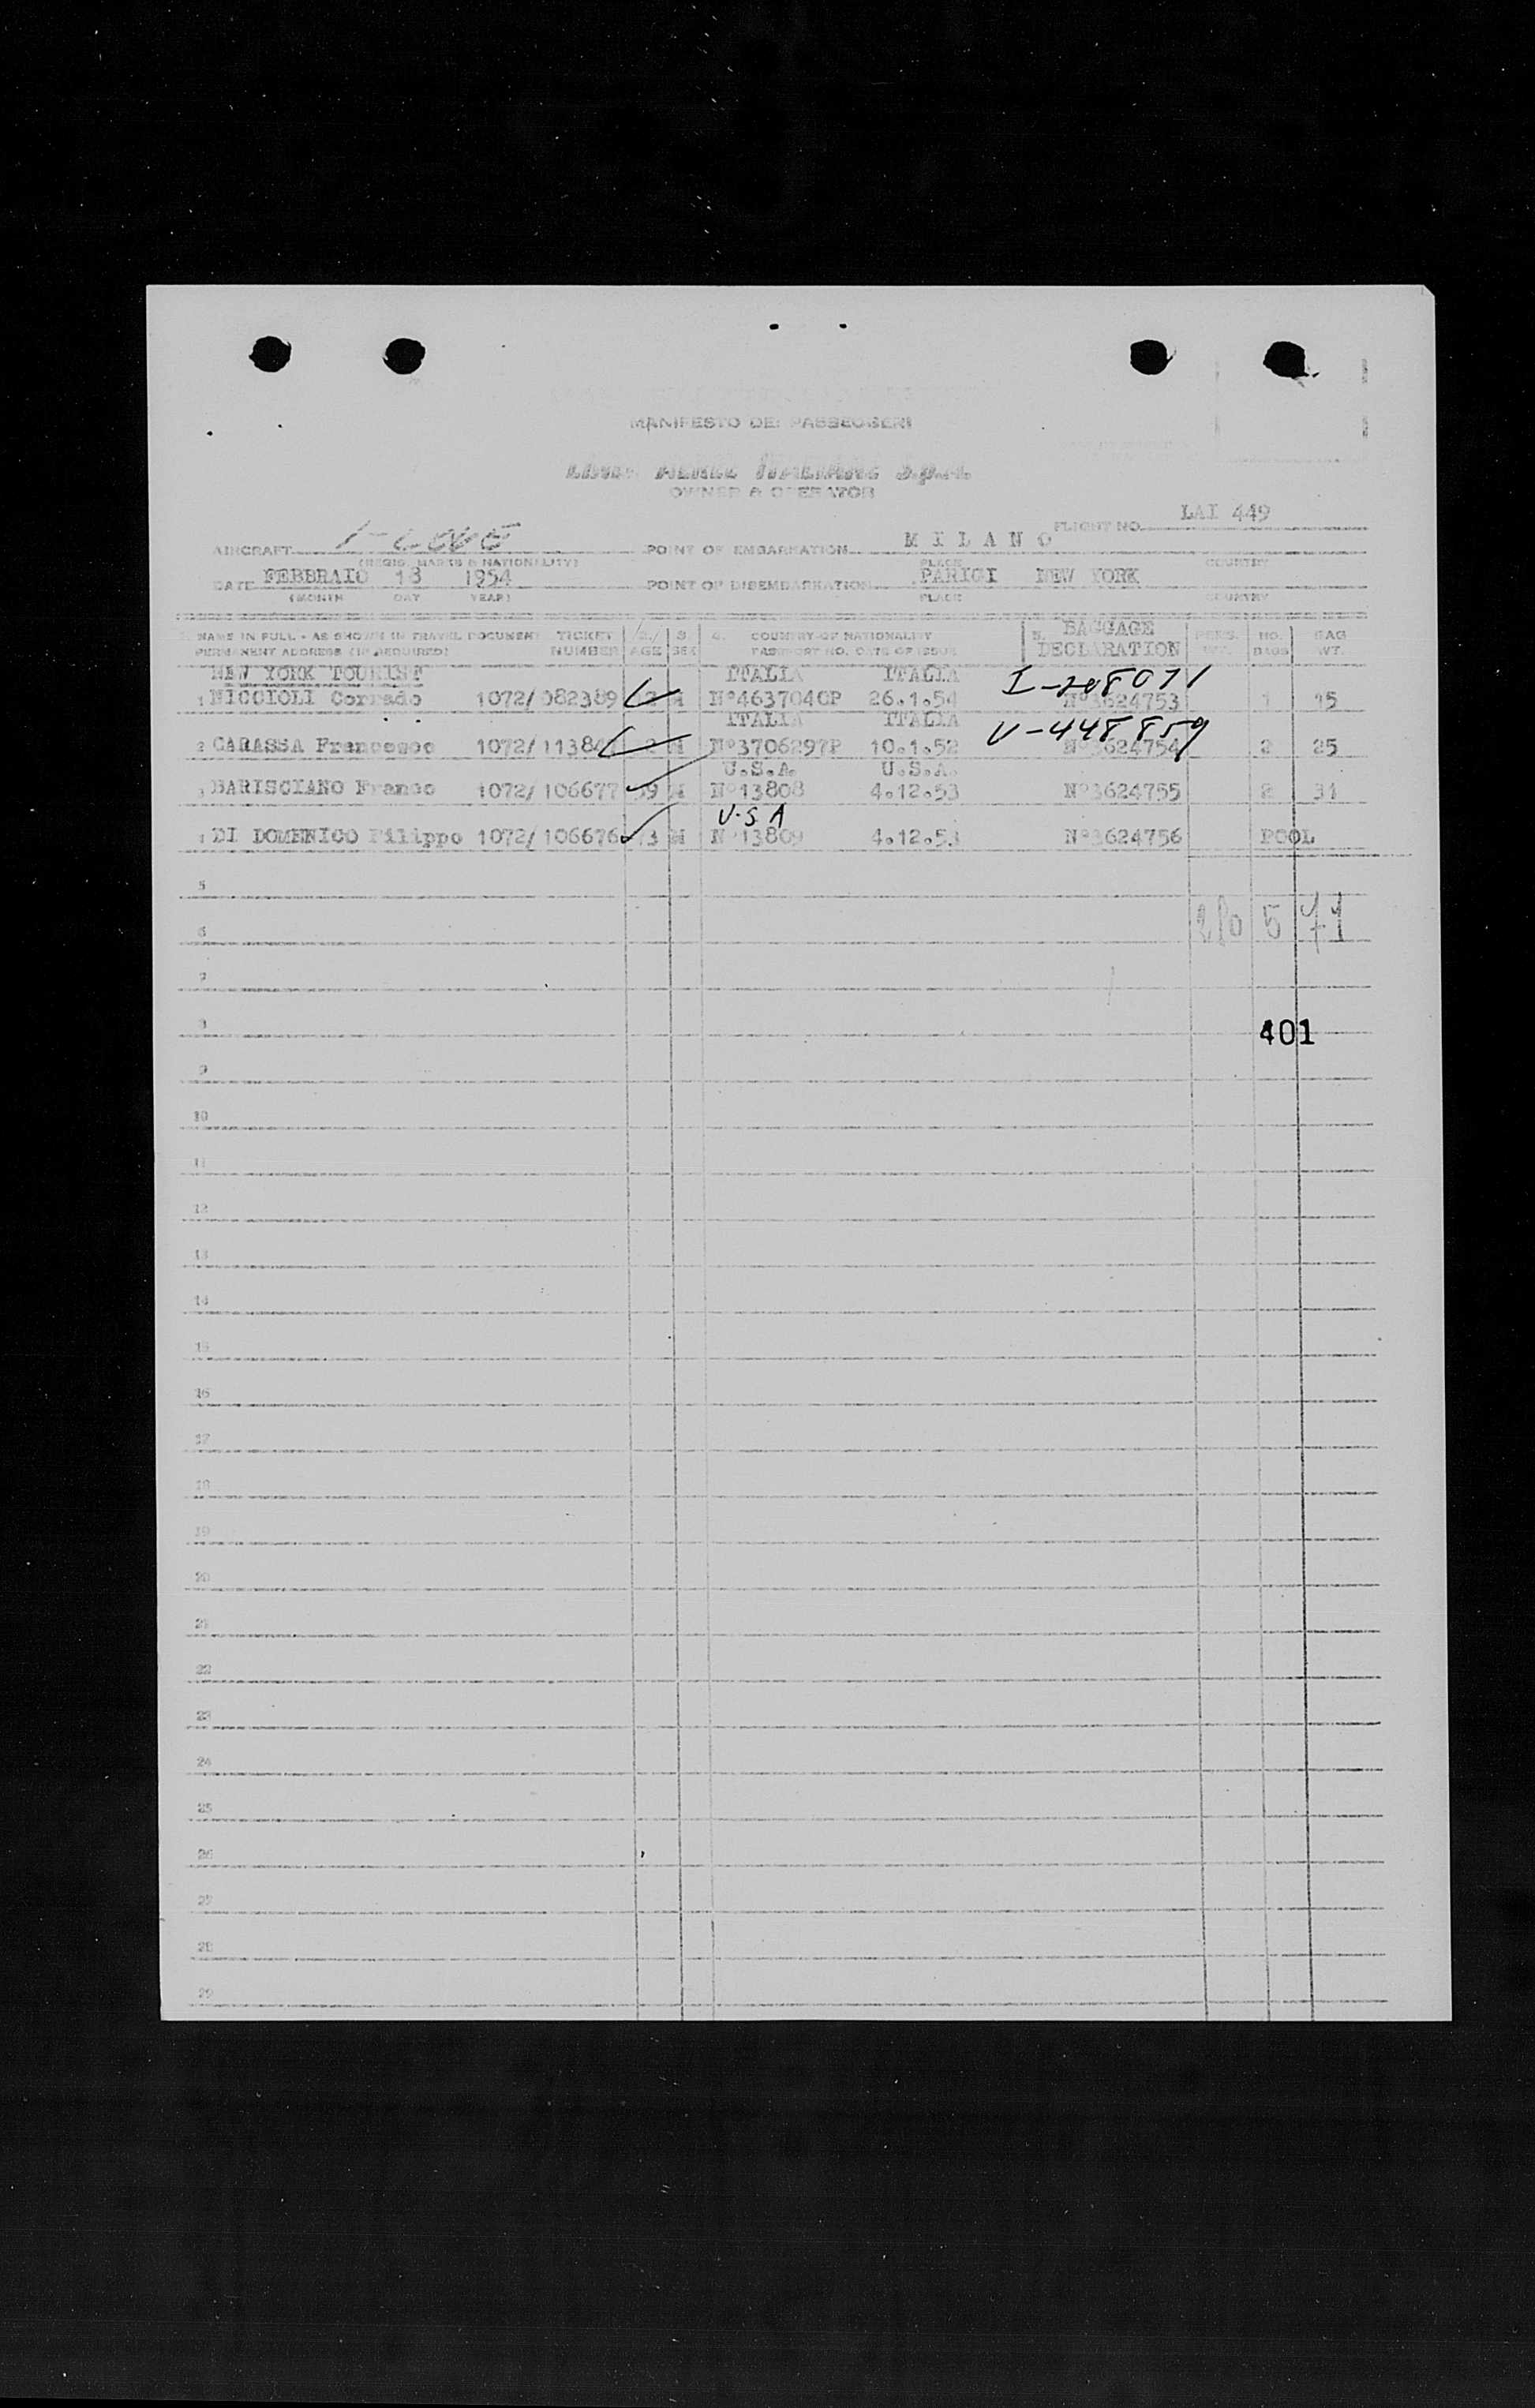 MANIFESTO DEI PASSEGGERI
LINEE AEREE ITALIANE S.p.A.
OWNER & OPERATOR
FLIGHT NO. LAI 449
AIRCRAFT POINT OF EMBARKATION MILANO
(REGIS. MARKS & NATIONALITY) PLACE COUNTRY
DATE FEBBRAIO 18 1954 POINT OF DISEMBARKATION PARIGI NEW YORK
(MONTH DAY YEAR) PLACE COUNTRY
NAME IN FULL - AS SHOWN IN TRAVEL DOCUMENT TICKET 2. 3. 4. COUNTRY OF NATIONALITY 5. BAGGAGE PERS. NO. BAG
PERMANENT ADDRESS (IF REQUIRED) NUMBER AGE SEX PASSPORT NO. DATE OF ISSUE DECLARATION WT. BAGS WT.
NEW YORK TOURIST ITALIA ITALIA I-208071
1 NICCIOLI Corrado 1072/082389 M Nº4637040P 26.1.54 Nº3624753 1 15
ITALIA ITALIA V-448859
2 CARASSA Francesco 1072/11384 M Nº3706297P 10.1.52 Nº3624754 2 25
U.S.A. U.S.A.
3 BARISCIANO Franco 1072/106677 59 M Nº13808 4.12.53 Nº3624755 2 31
U.S A
4 DI DOMENICO Filippo 1072/106676 M Nº13809 4.12.53 Nº3624756 POOL
5
6 5 71
7
8 401
9
10
11
12
13
14
15
16
17
18
19
20
21
22
23
24
25
26
27
28
29